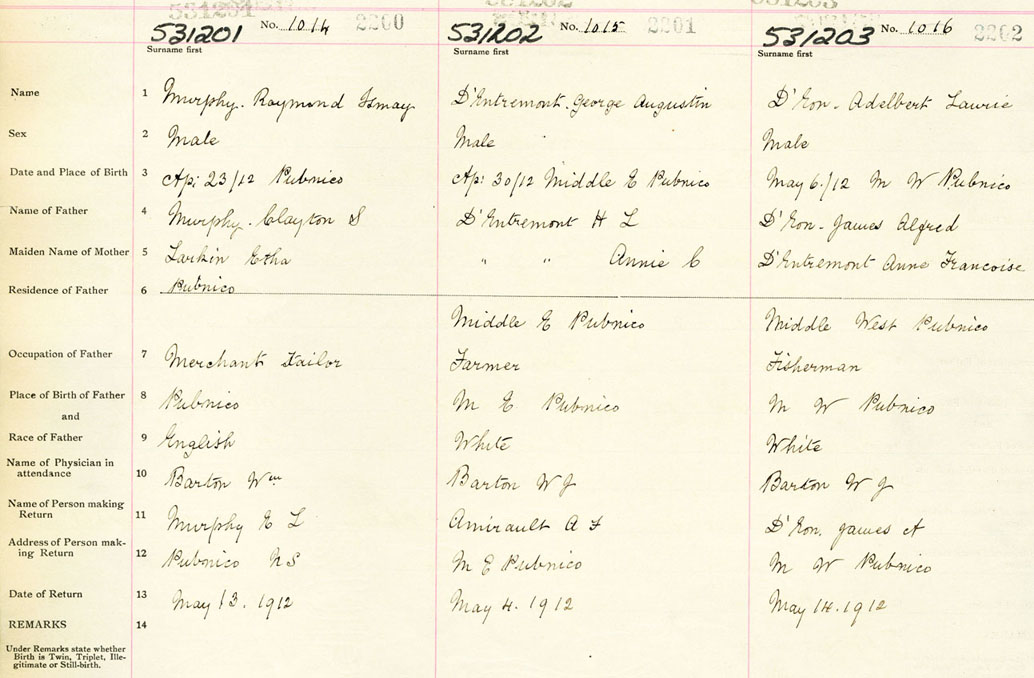 531201 No. 1014 2200 531202 No. 1015 2201 531203 No. 1016 2202
Surname first Surname first Surname first
Name 1 Murphy. Raymond Ismay D'Entremont. George Augustin D'Eon. Adelbert Lawrie
Sex 2 Male Male Male
Date and Place of Birth 3 Ap: 23/12 Pubnico Ap: 30/12 Middle E Pubnico May 6./12 M W Pubnico
Name of Father 4 Murphy. Clayton S D'Entremont H L D'Eon. James Alfred
Maiden Name of Mother 5 Larkin Etha " " Annie C D'Entremont Anne Francoise
Residence of Father 6 Pubnico
Middle E Pubnico Middle West Pubnico
Occupation of Father 7 Merchant Tailor Farmer Fisherman
Place of Birth of Father 8 Pubnico M E Pubnico M W Pubnico
and
Race of Father 9 English White White
Name of Physician in
attendance 10 Barton Wm Barton W J Barton W J
Name of Person making
Return 11 Murphy E L Amirault A F D'Eon. James A
Address of Person mak-
ing Return 12 Pubnico NS M E Pubnico M W Pubnico
Date of Return 13 May 13. 1912 May 4. 1912 May 14. 1912
REMARKS 14
Under Remarks state whether
Birth is Twin, Triplet, Ille-
gitimate or Still-birth.